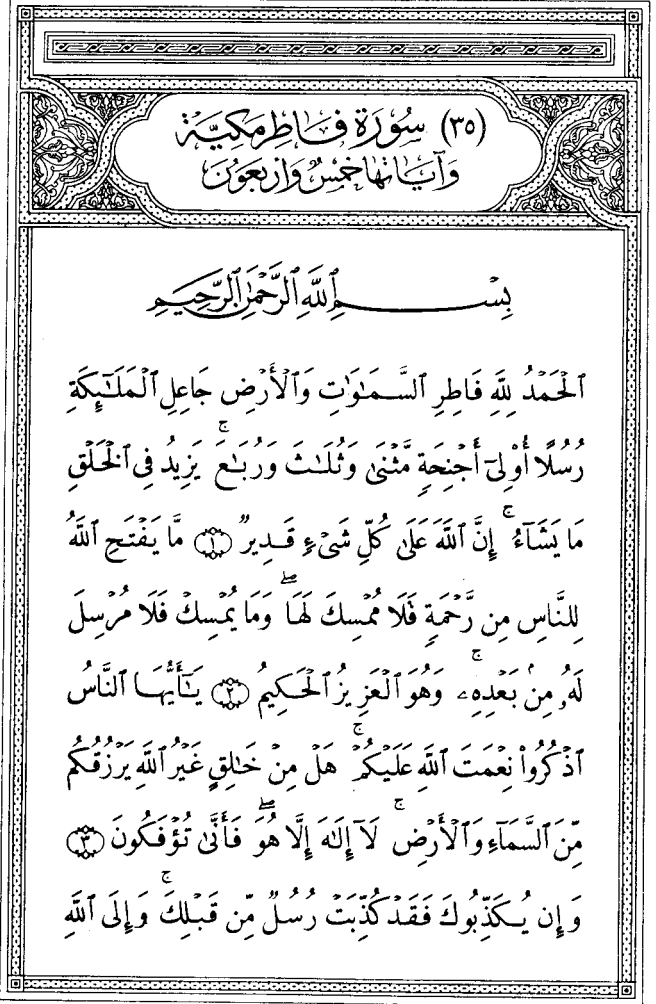 (٣٥) سُورَة فَاطِر مَكيَّة
وَآيَاتُهَا خَمْسٌ وَأَرْبَعُونَ
بِسْمِ ٱللَّهِ ٱلرَّحْمَٰنِ ٱلرَّحِيمِ
ٱلْحَمْدُ لِلَّهِ فَاطِرِ ٱلسَّمَٰوَٰتِ وَٱلْأَرْضِ جَاعِلِ ٱلْمَلَٰٓئِكَةِ
رُسُلًا أُو۟لِىٓ أَجْنِحَةٍ مَّثْنَىٰ وَثُلَٰثَ وَرُبَٰعَ ۚ يَزِيدُ فِى ٱلْخَلْقِ
مَا يَشَآءُ ۚ إِنَّ ٱللَّهَ عَلَىٰ كُلِّ شَىْءٍ قَدِيرٌ ﴿١﴾ مَّا يَفْتَحِ ٱللَّهُ
لِلنَّاسِ مِن رَّحْمَةٍ فَلَا مُمْسِكَ لَهَا ۖ وَمَا يُمْسِكْ فَلَا مُرْسِلَ
لَهُۥ مِنۢ بَعْدِهِۦ ۚ وَهُوَ ٱلْعَزِيزُ ٱلْحَكِيمُ ﴿٢﴾ يَٰٓأَيُّهَا ٱلنَّاسُ
ٱذْكُرُوا۟ نِعْمَتَ ٱللَّهِ عَلَيْكُمْ ۚ هَلْ مِنْ خَٰلِقٍ غَيْرُ ٱللَّهِ يَرْزُقُكُم
مِّنَ ٱلسَّمَآءِ وَٱلْأَرْضِ ۚ لَآ إِلَٰهَ إِلَّا هُوَ ۖ فَأَنَّىٰ تُؤْفَكُونَ ﴿٣﴾
وَإِن يُكَذِّبُوكَ فَقَدْ كُذِّبَتْ رُسُلٌ مِّن قَبْلِكَ ۚ وَإِلَى ٱللَّهِ